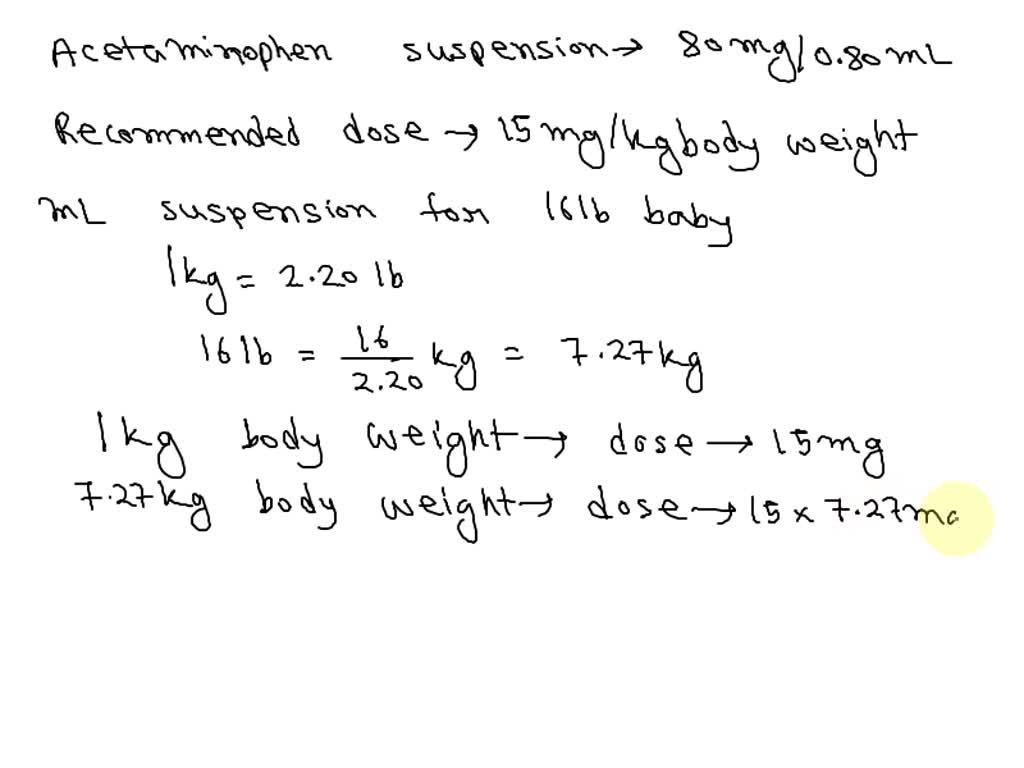 Acetaminophen suspension → 80 mg/0.80 mL
Recommended dose → 15 mg/kg body weight
mL suspension for 16 lb baby
1kg = 2.20 lb
16 lb = 16/2.20 kg = 7.27 kg
1 kg body weight → dose → 15 mg
7.27 kg body weight → dose → 15 × 7.27 mg